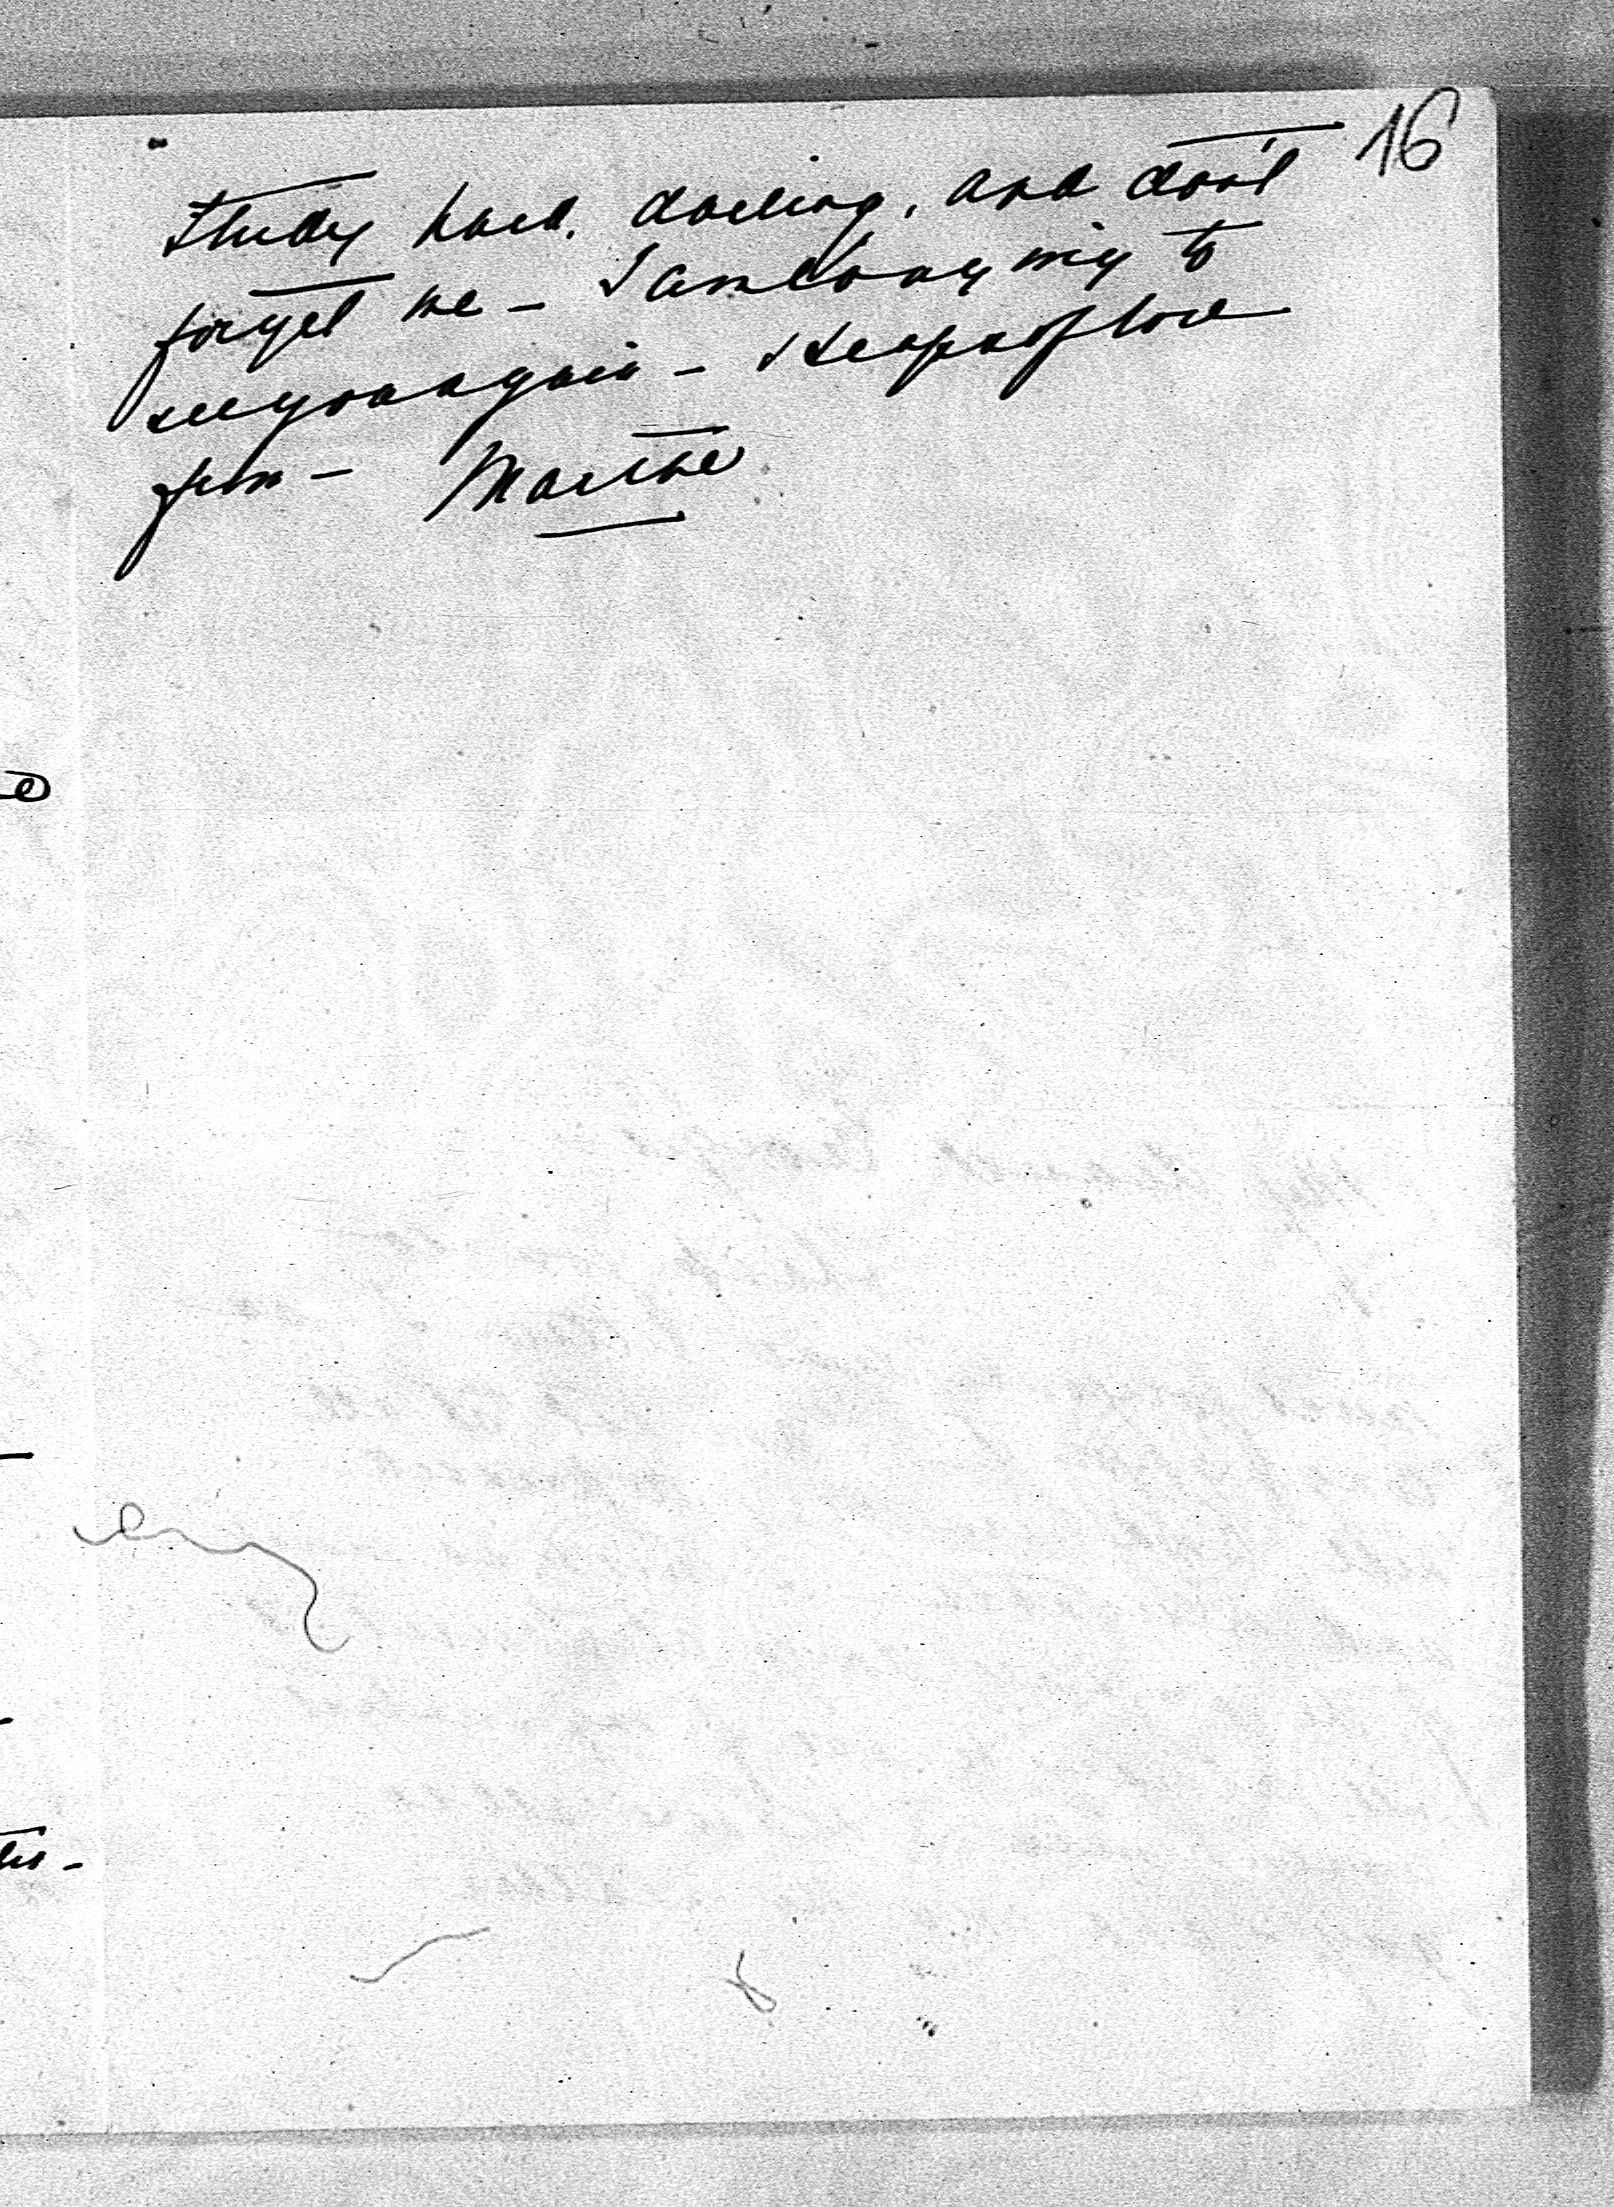 16
Study hard, darling, and don't
forget me – I am longing to
see you again – Heaps of love
from – Marthe